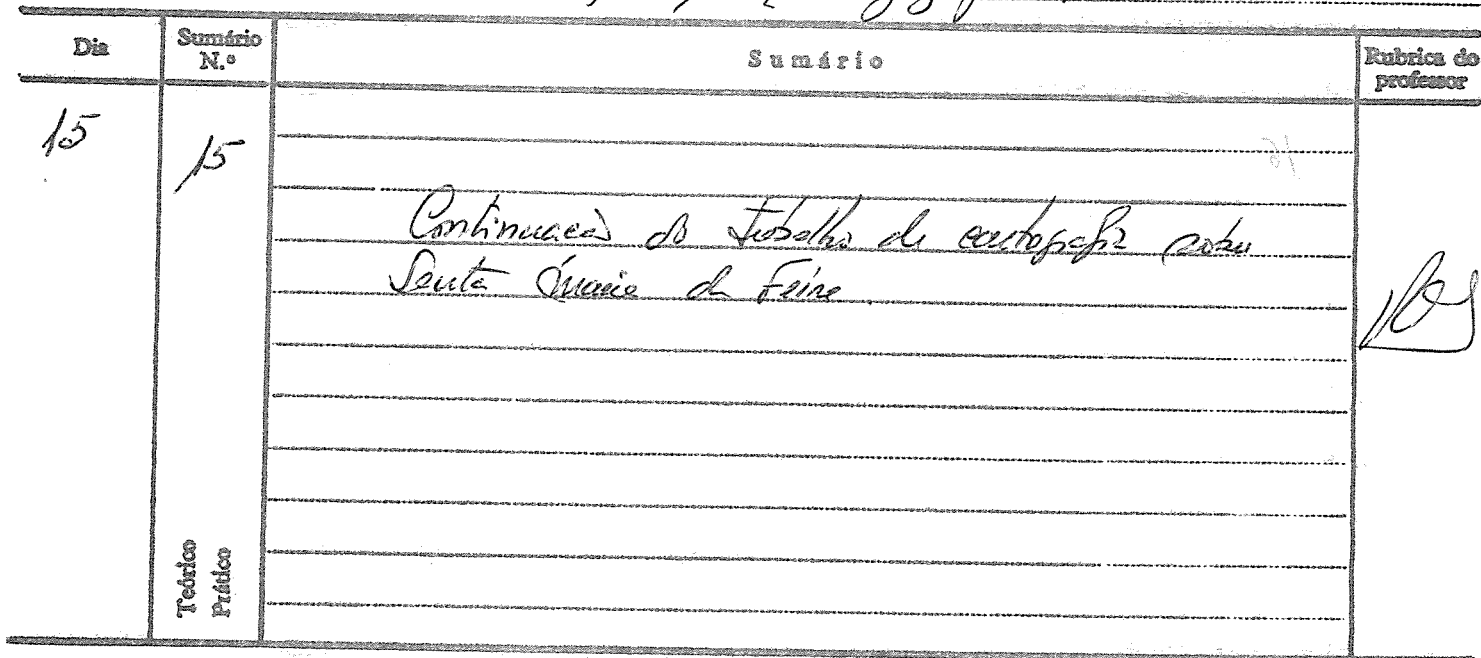 Dia
Sumário N.º
Sumário
Rubrica do professor
15
15
16
Continuação do trabalho de cartografia sobre
Santa Maria da Feira
Teórico
Prático